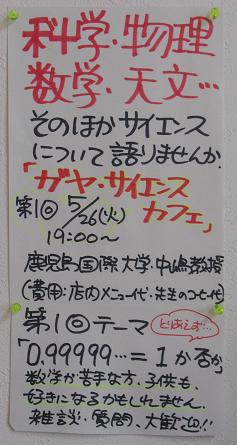 科学・物理
数学・天文…
そのほかサイエンス
について語りませんか.
「ガヤ・サイエンス
カフェ」
第1回 5/26(火)
19:00〜
鹿児島国際大学・中嶋教授
(費用:店内メニュー代・先生のコピー代)
第1回テーマ
とりあえず…
「0.99999…=1か否か」
数学が苦手な方、子供も、
好きになるかもしれません.
雑談・質問、大歓迎!!